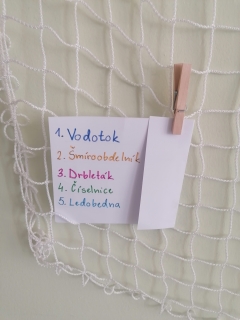 1. Vodotok
2. Šmíroobdelník
3. Drbleták
4. Číselnice
5. Ledobedna